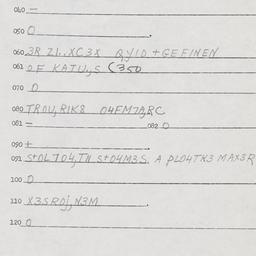 040 —
050 0
060 3R ZL.XC3X QYID + GEFINEN
061 OF KATU,S (350
070 0
080 TROU,RIK8 04FM7A,RC
081 — 082 0
090 +
091 S+OL704,TN S+04M3S. A PL04TN3 MAX3R
100 0
110 X3SROj,N3M
120 0